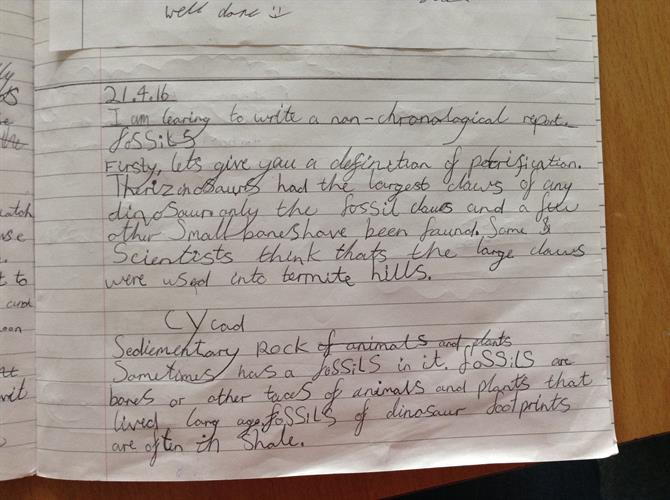 well done
21.4.16
I am learing to write a non-chronological report.
fossils
Firsty, lets give you a definition of petrification.
Therizonosaurs had the largest claws of any
dinosaur only the fossil claws and a few
other small bones have been found. Some
Scientists think thats the large claws
were used into termite hills.
Cycad
Sediementary Rock of animals and plants
Sometimes has a fossils in it. fossils are
bones or other taces of animals and plants that
lived long ago. fossils of dinosaur footprints
are often in Shale.